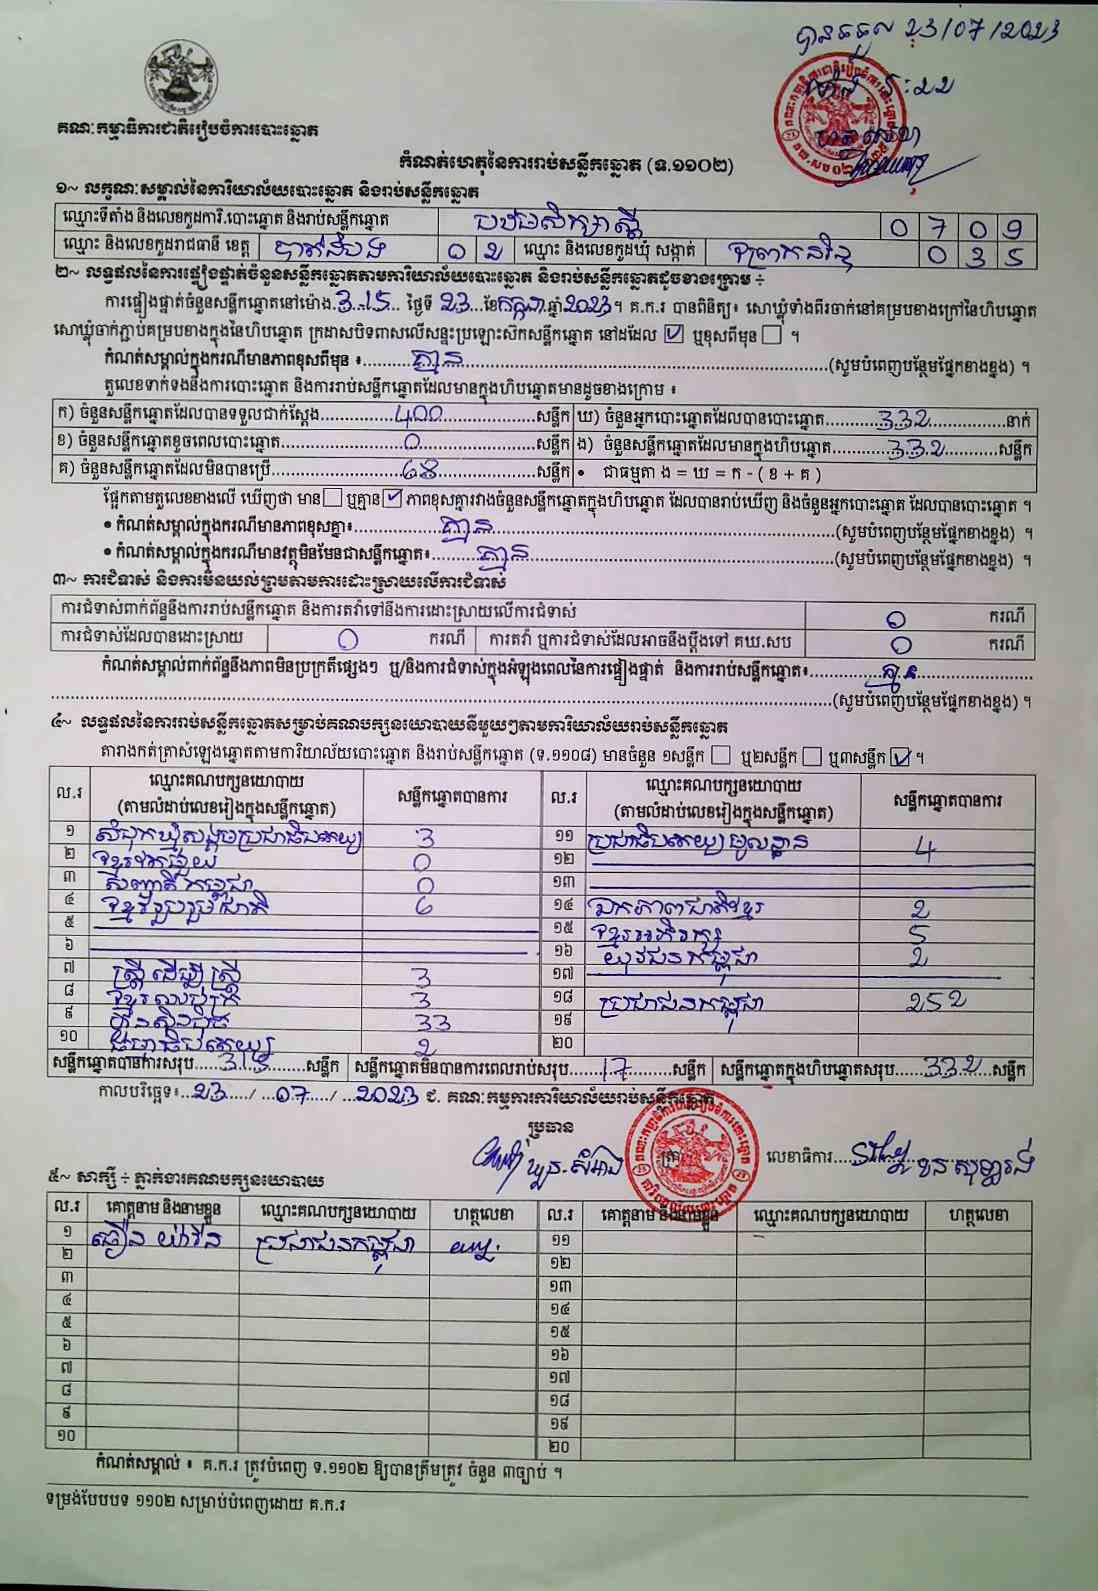 បានទទួល 23/07/2023
ម៉ោង ៖22
គណៈកម្មាធិការជាតិរៀបចំការបោះឆ្នោត
កំណត់ហេតុនៃការរាប់សន្លឹកឆ្នោត (ទ.១១០២)
១~ លក្ខណៈសម្គាល់នៃការិយាល័យបោះឆ្នោត និងរាប់សន្លឹកឆ្នោត
ឈ្មោះទីតាំង និងលេខកូដការិ.បោះឆ្នោត និងរាប់សន្លឹកឆ្នោត បឋមសិក្សាស្តី 0 7 0 9
ឈ្មោះ និងលេខកូដរាជធានី ខេត្ត បាត់ដំបង 0 2 ឈ្មោះ និងលេខកូដឃុំ សង្កាត់ 0 3 5
២~ លទ្ធផលនៃការផ្ទៀងផ្ទាត់ចំនួនសន្លឹកឆ្នោតតាមការិយាល័យបោះឆ្នោត និងរាប់សន្លឹកឆ្នោតដូចខាងក្រោម ÷
ការផ្ទៀងផ្ទាត់ចំនួនសន្លឹកឆ្នោតនៅម៉ោង.3:15... ថ្ងៃទី 23.ខែកក្កដា.ឆ្នាំ2023។ គ.ក.រ បានពិនិត្យ៖ សោឃ្លុំទាំងពីរចាក់នៅគម្របខាងក្រៅនៃហិបឆ្នោត
សោឃ្លុំចាក់ភ្ជាប់គម្របខាងក្នុងនៃហិបឆ្នោត ក្រដាសបិទពាសលើសន្ទះប្រឡោះស៊កសន្លឹកឆ្នោត នៅដដែល ☑ ឬខុសពីមុន ☐ ។
កំណត់សម្គាល់ក្នុងករណីមានភាពខុសពីមុន ៖..........គ្មាន..........(សូមបំពេញបន្ថែមផ្នែកខាងខ្នង) ។
តួលេខទាក់ទងនឹងការបោះឆ្នោត និងការរាប់សន្លឹកឆ្នោតដែលមានក្នុងហិបឆ្នោតមានដូចខាងក្រោម ៖
ក) ចំនួនសន្លឹកឆ្នោតដែលបានទទួលជាក់ស្តែង..........400..........សន្លឹក ឃ) ចំនួនអ្នកបោះឆ្នោតដែលបានបោះឆ្នោត..........332..........នាក់
ខ) ចំនួនសន្លឹកឆ្នោតខូចពេលបោះឆ្នោត..........0..........សន្លឹក ង) ចំនួនសន្លឹកឆ្នោតដែលមានក្នុងហិបឆ្នោត..........332..........សន្លឹក
គ) ចំនួនសន្លឹកឆ្នោតដែលមិនបានប្រើ..........68..........សន្លឹក • ជាធម្មតា ង = ឃ = ក - ( ខ + គ )
ផ្អែកតាមតួលេខខាងលើ ឃើញថា មាន ☐ ឬគ្មាន ☑ ភាពខុសគ្នារវាងចំនួនសន្លឹកឆ្នោតក្នុងហិបឆ្នោត ដែលបានរាប់ឃើញ និងចំនួនអ្នកបោះឆ្នោត ដែលបានបោះឆ្នោត ។
• កំណត់សម្គាល់ក្នុងករណីមានភាពខុសគ្នា៖..........គ្មាន..........(សូមបំពេញបន្ថែមផ្នែកខាងខ្នង) ។
• កំណត់សម្គាល់ក្នុងករណីមានវត្ថុមិនមែនជាសន្លឹកឆ្នោត៖..........គ្មាន..........(សូមបំពេញបន្ថែមផ្នែកខាងខ្នង) ។
៣~ ការជំទាស់ និងការមិនយល់ព្រមតាមការដោះស្រាយលើការជំទាស់
ការជំទាស់ពាក់ព័ន្ធនឹងការរាប់សន្លឹកឆ្នោត និងការតវ៉ាទៅនឹងការដោះស្រាយលើការជំទាស់ 0 ករណី
ការជំទាស់ដែលបានដោះស្រាយ 0 ករណី ការតវ៉ា ឬការជំទាស់ដែលអាចនឹងប្តឹងទៅ គឃ.សប 0 ករណី
កំណត់សម្គាល់ពាក់ព័ន្ធនឹងភាពមិនប្រក្រតីផ្សេងៗ ឬ/និងការជំទាស់ក្នុងអំឡុងពេលនៃការផ្ទៀងផ្ទាត់ និងការរាប់សន្លឹកឆ្នោត៖..........គ្មាន..........
..........(សូមបំពេញបន្ថែមផ្នែកខាងខ្នង) ។
៤~ លទ្ធផលនៃការរាប់សន្លឹកឆ្នោតសម្រាប់គណបក្សនយោបាយនីមួយៗតាមការិយាល័យរាប់សន្លឹកឆ្នោត
តារាងកត់ត្រាសំឡេងឆ្នោតតាមការិយាល័យបោះឆ្នោត និងរាប់សន្លឹកឆ្នោត (ទ.១១០៨) មានចំនួន ១សន្លឹក ☐ ឬ២សន្លឹក ☐ ឬ៣សន្លឹក ☑ ។
ល.រ ឈ្មោះគណបក្សនយោបាយ (តាមលំដាប់លេខរៀងក្នុងសន្លឹកឆ្នោត) សន្លឹកឆ្នោតបានការ ល.រ ឈ្មោះគណបក្សនយោបាយ (តាមលំដាប់លេខរៀងក្នុងសន្លឹកឆ្នោត) សន្លឹកឆ្នោតបានការ
១ សំបុកឃ្មុំសង្គមប្រជាធិបតេយ្យ 3 ១១ ប្រជាធិបតេយ្យមូលដ្ឋាន 4
២ 0 ១២
៣ សញ្ជាតិកម្ពុជា 0 ១៣
៤ ខ្មែររួបរួមជាតិ 6 ១៤ ឯកភាពជាតិខ្មែរ 2
៥ ១៥ ខ្មែរអភិរក្ស 5
៦ ១៦ យុវជនកម្ពុជា 2
៧ ស្ត្រីដើម្បីស្ត្រី 3 ១៧
៨ 3 ១៨ ប្រជាជនកម្ពុជា 252
៩ ហ៊្វុនស៊ិនប៉ិច 33 ១៩
១០ ធម្មាធិបតេយ្យ 2 ២០
សន្លឹកឆ្នោតបានការសរុប.....315.....សន្លឹក សន្លឹកឆ្នោតមិនបានការពេលរាប់សរុប.....17.....សន្លឹក សន្លឹកឆ្នោតក្នុងហិបឆ្នោតសរុប.....332.....សន្លឹក
កាលបរិច្ឆេទ៖..23..../...07..../...2023 ជ. គណៈកម្មការការិយាល័យរាប់សន្លឹកឆ្នោត
ប្រធាន
លេខាធិការ
៥~ សាក្សី ÷ ភ្នាក់ងារគណបក្សនយោបាយ
ល.រ គោត្តនាម និងនាមខ្លួន ឈ្មោះគណបក្សនយោបាយ ហត្ថលេខា ល.រ គោត្តនាម និងនាមខ្លួន ឈ្មោះគណបក្សនយោបាយ ហត្ថលេខា
១ ប្រជាជនកម្ពុជា ១១
២ ១២
៣ ១៣
៤ ១៤
៥ ១៥
៦ ១៦
៧ ១៧
៨ ១៨
៩ ១៩
១០ ២០
កំណត់សម្គាល់ ៖ គ.ក.រ ត្រូវបំពេញ ទ.១១០២ ឱ្យបានត្រឹមត្រូវ ចំនួន ៣ច្បាប់ ។
ទម្រង់បែបបទ ១១០២ សម្រាប់បំពេញដោយ គ.ក.រ